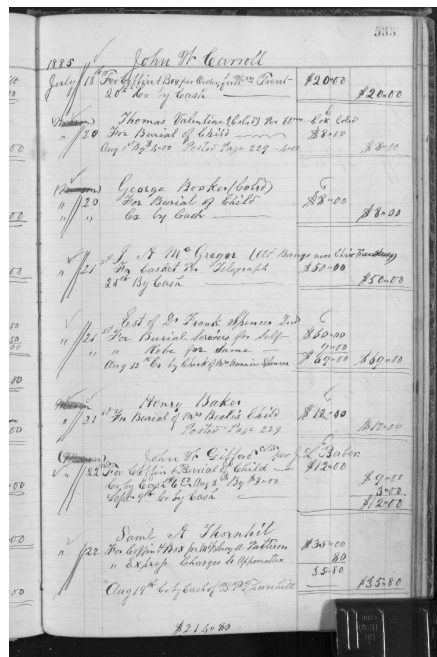 535
1885 John W Carroll
July 18th For Coffin & Box per Order for Wm Trent $20.00
20th Cr by Cash $20.00
Thomas Valentine (Cold) Per Wm Cox Cold
" 20 For Burial of Child $8.00
Aug 1st By $4.00 Posted Page 229 - 4.00 $8.00
George Booker (Cold)
" 20 For Burial of Child $8.00
" " Cr by Cash $8.00
J. A McGregor (At Bangs near
" 21st For Casket Per Telegraph $50.00
28th By Cash $50.00
Est of Dr Frank Spencer Decd
" 21st For Burial Services for Self $60.00
" Robe for Same 9.00
Aug 12th Cr by Check of Mrs Spencer $69.00 $69.00
Henry Baker
" 21st For Burial of Mrs Beale's Child $12.00
Posted Page 229 $12.00
John W. Gifford Cold per J. L Baber
" 22nd For Coffin & Burial of Child $12.00
Aug 8th By $3.00 $9.00
Sept 9th Cr by Cash 3.00
$12.00
Saml A Thornhill
" 22 For Coffin & Box for Patterson $35.00
" Express Charges to Appomattox 80
35.80
Aug 19th Cr by Cash of B P Thornhill $35.80
$214.80